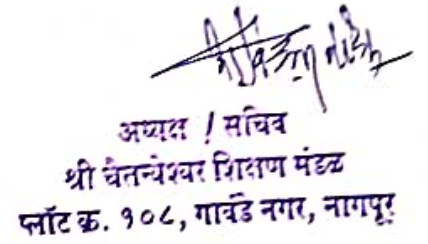 अध्यक्ष / सचिव
श्री चैतन्येश्वर शिक्षण मंडळ
प्लॉट क्र. १०८, गावंडे नगर, नागपूर